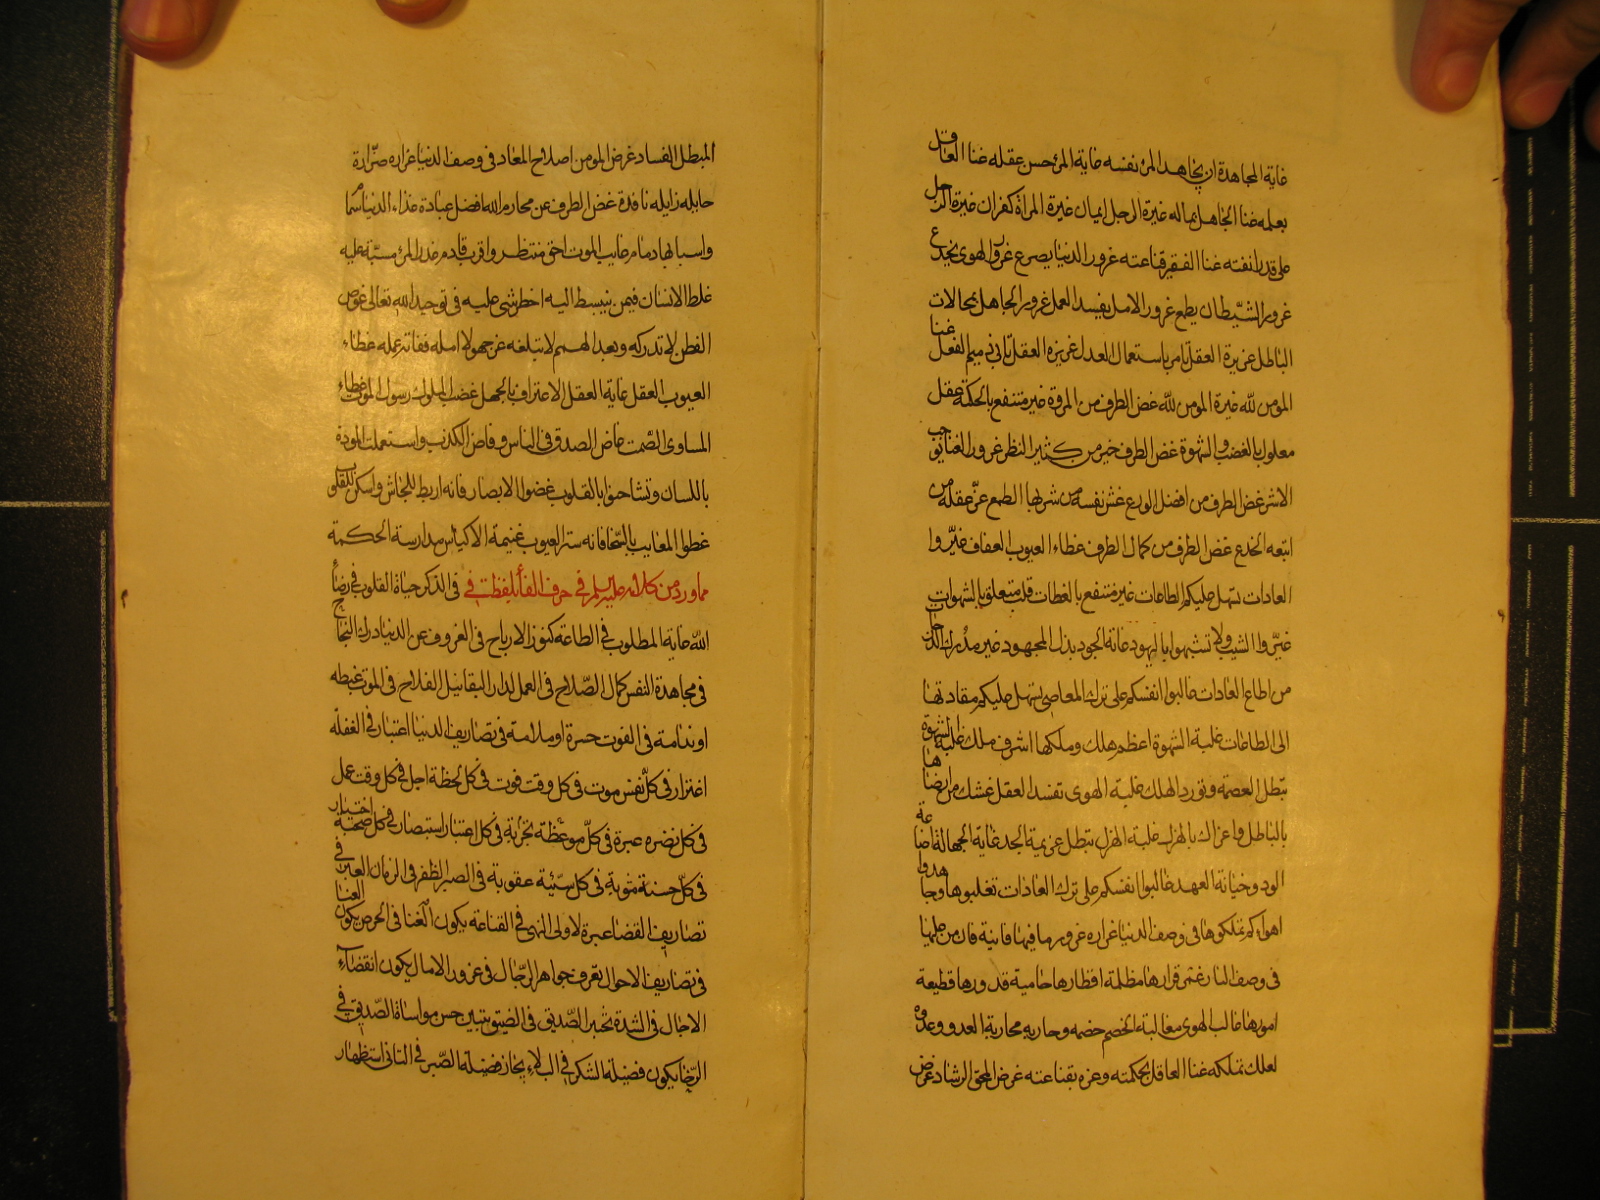 غاية المجاهدة ان يجاهد المرء نفسه غاية المرء حسن عقله غنا العاقل
بعلمه غنا الجاهل بماله غيرة الرجل ايمان غيرة المراة كفران غيرة الرجل
على قدر انفته غنا الفقير قناعته غرور الدنيا يصرع غرور الهوى يخدع
غرور الشيطان يطمع غرور الامل يفسد العمل غرور الجاهل بمحالات
الباطل غريزة العقل يامر باستعمال العدل غريزة العقل تابى ذميم الفعل غنا
المومن لله غيرة المومن لله غض الطرف من المروة غير منتفع بالحكمة عقل
معلول بالغضب والشهوة غض الطرف خير من كثير النظر غرور الغنا يوجب
الاشر غض الطرف من افضل الورع غش نفسه من شربها الطمع عن عقله من
اتبعه الخدع غض الطرف من كمال الظرف غطاء العيوب العفاف غيروا
العادات تسهل عليكم الطاعات غير منتفع بالعظات قلب متعلق بالشهوات
غيروا الشيب ولا تشبهوا باليهود غاية الجود بذل المجهود غير مدرك الدرجات
من اطاع العادات غالبوا انفسكم على ترك المعاصي تسهل عليكم مقادتها
الى الطاعات غلبة الشهوة اعظم هلك وملكها اشرف ملك غلبة الشهوة
تبطل العصمة وتورد الهلك غلبة الهوى تفسد العقل غشك من ارضاك
بالباطل واغراك بالهزل غلبة الهزل تبطل عزيمة الجد غاية الجهالة اضاعة
الود وخيانة العهد غالبوا انفسكم على ترك العادات تغلبوها وجاهدوا
اهواءكم تملكوها في وصف الدنيا غراره غرور ما فيها فانية فان من عليها
في وصف النار غمر قرارها مظلمة اقطارها حامية قدورها فظيعة
امورها غالب الهوى مغالبة الخصم خصمه وحاربه محاربة العدو وعدوه
لعلك تملكه غنا العاقل بحكمته وعزه بقناعته غرض المحق الرشاد غرض
المبطل الفساد غرض المومن اصلاح المعاد في وصف الدنيا غراره ضرارة
حايله زايله نافدة غض الطرف عن محارم الله افضل عبادة غذاء الدنيا سمام
واسبابها رمام غايب الموت احق منتظر واقرب قادم غدر المرء مسبة عليه
غلط الانسان فيمن ينبسط اليه اخطر شي عليه في توحيد الله تعالى غوص
الفطن لا تدركه وبعد الهمم لا تبلغه غر جهولا امله ففاته عمله غطاء
العيوب العقل غاية العقل الاعتراف بالجهل غضب الملوك رسول الموت غطاء
المساوى الصمت غاض الصدق في الناس وفاض الكذب واستعملت المودة
باللسان وتشاحنوا بالقلوب غضوا الابصار فانه اربط للجاش واسكن للقلوب
غطوا المعايب بالسخا فانه ستر العيوب غنيمة الاكياس مدارسة الحكمة
مما ورد من كلامه عليه السلم في حرف الفا بلفظة في في الذكر حياة القلوب في رضا
الله غاية المطلوب في الطاعة كنوز الارباح في العزوف عن الدنيا درك النجاح
في مجاهدة النفس كمال الصلاح في العمل لدار البقا نيل الفلاح في الموت غبطه
او ندامة في الفوت حسرة او ملامة في تصاريف الدنيا اعتبار في الغفلة
اغترار في كل نفس موت في كل وقت فوت في كل لحظة اجل في كل وقت عمل
في كل نضره عبرة في كل موعظة تجربة في كل اعتبار استبصار في كل صحبة اختبار
في كل حسنة مثوبة في كل سيئة عقوبة في الصبر الظفر في الزمان العبر في
تصاريف القضا عبرة لاولى النهى في القناعة يكون الغنا في الحرص يكون العنا
في تصاريف الاحوال تعرف جواهر الرجال في غرور الامال يكون انقضاء
الاجال في الشدة تختبر الصديق في الضيق يتبين حسن مواساة الصديق في
الرخا يكون فضيلة الشكر في البلاء يحاز فضيلة الصبر في التاني استظهار